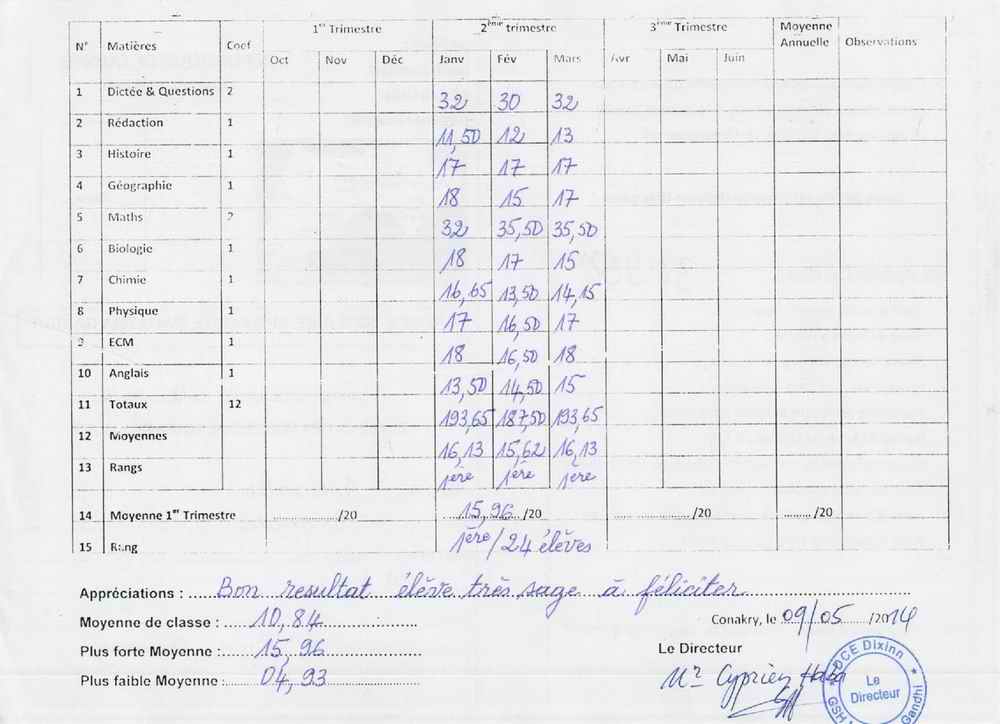 N° Matières Coef 1er Trimestre 2ème trimestre 3ème Trimestre Moyenne Annuelle Observations
Oct Nov Déc Janv Fév Mars Avr Mai Juin
1 Dictée & Questions 2 32 30 32
2 Rédaction 1 11,50 12 13
3 Histoire 1 17 17 17
4 Géographie 1 18 15 17
5 Maths 2 32 35,50 35,50
6 Biologie 1 18 17 15
7 Chimie 1 16,65 13,50 14,15
8 Physique 1 17 16,50 17
9 ECM 1 18 16,50 18
10 Anglais 1 13,50 14,50 15
11 Totaux 12 193,65 187,50 193,65
12 Moyennes 16,13 15,62 16,13
13 Rangs 1ère 1ère 1ère
14 Moyenne 1er Trimestre ............/20 15,96 /20 ............/20 ........./20
15 Rang 1ère / 24 élèves
Appréciations : Bon resultat élève très sage à féliciter
Moyenne de classe : 10,84
Conakry, le 09/05 /2014
Plus forte Moyenne : 15,96
Le Directeur
Plus faible Moyenne : 04,93
Mr Cyprien Haba
DCE Dixinn
Le Directeur
GSH Gandhi